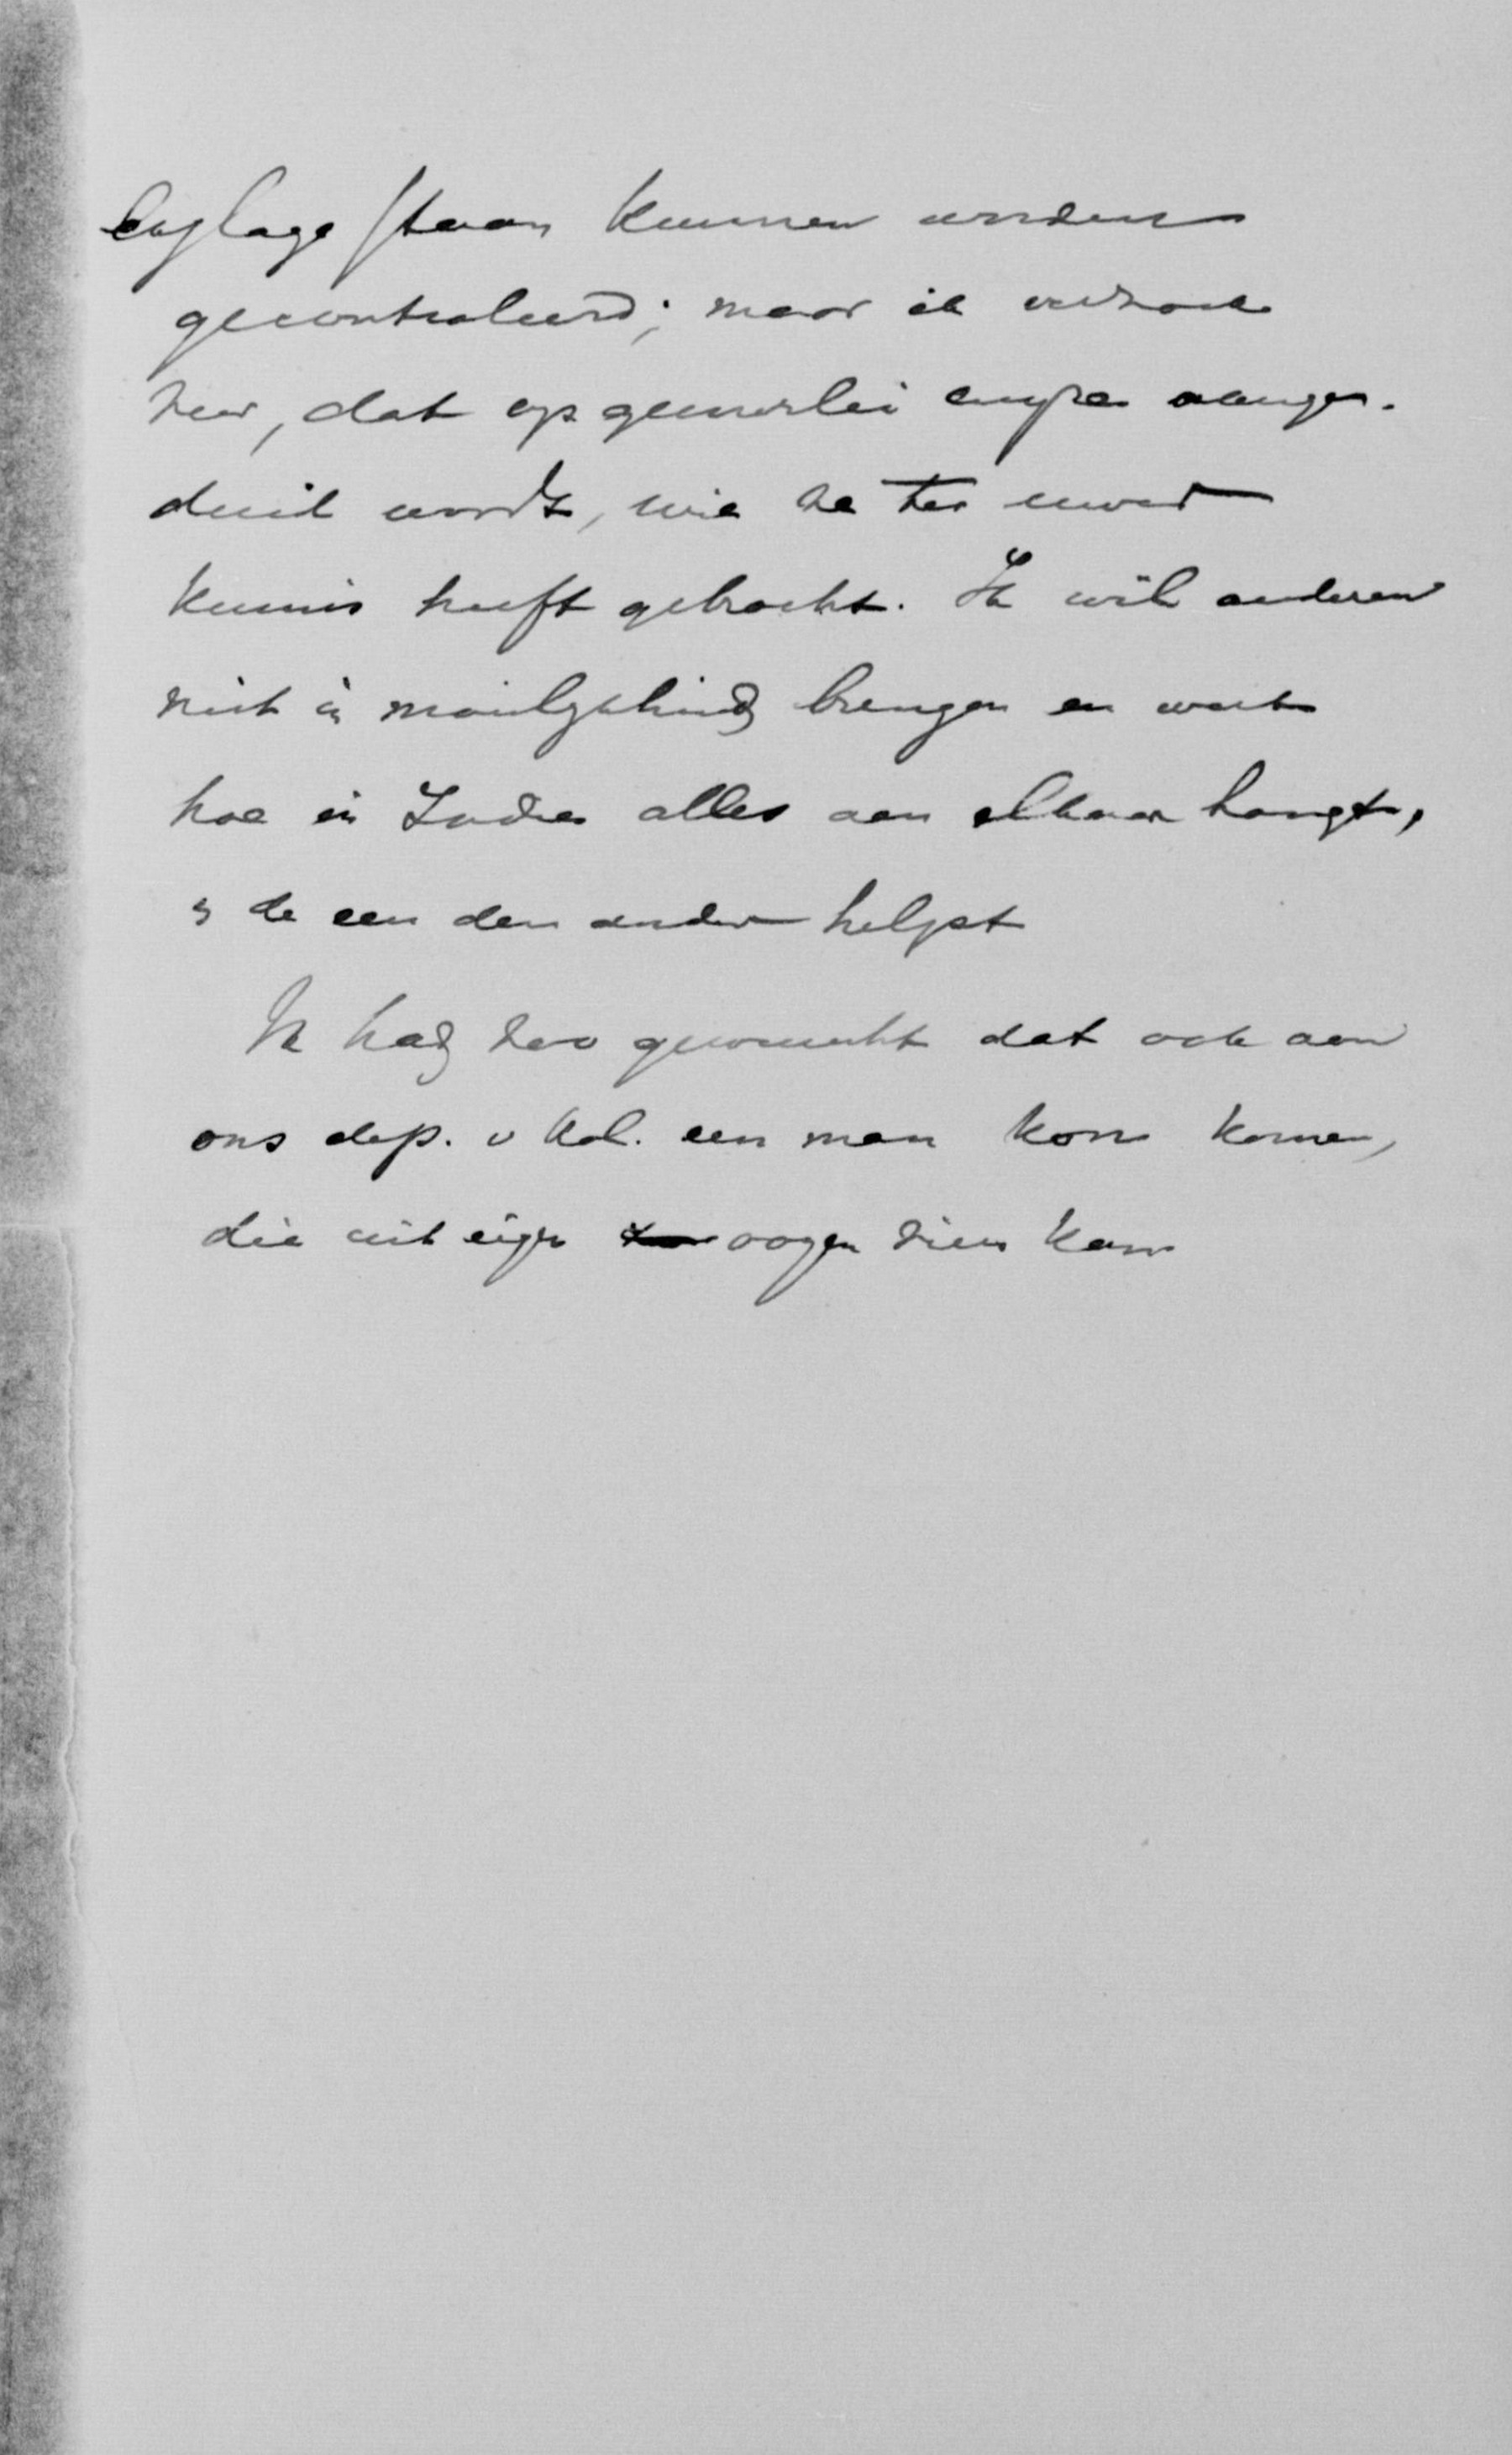 bijlage staan kunnen worden
gecontroleerd; maar ik verzoek
zeer, dat op geenerlei wijze aange-
duid wordt, wie ze ter uwer
kennis heeft gebracht. Ik wil anderen
niet in moeilijkheid brengen en weet
hoe in Indie alles aan elkaar hangt,
en de een den ander helpt
Ik had zoo gewenscht dat ook aan
ons dep. v Kol. een man kon komen,
die uit eigen oogen zien kan